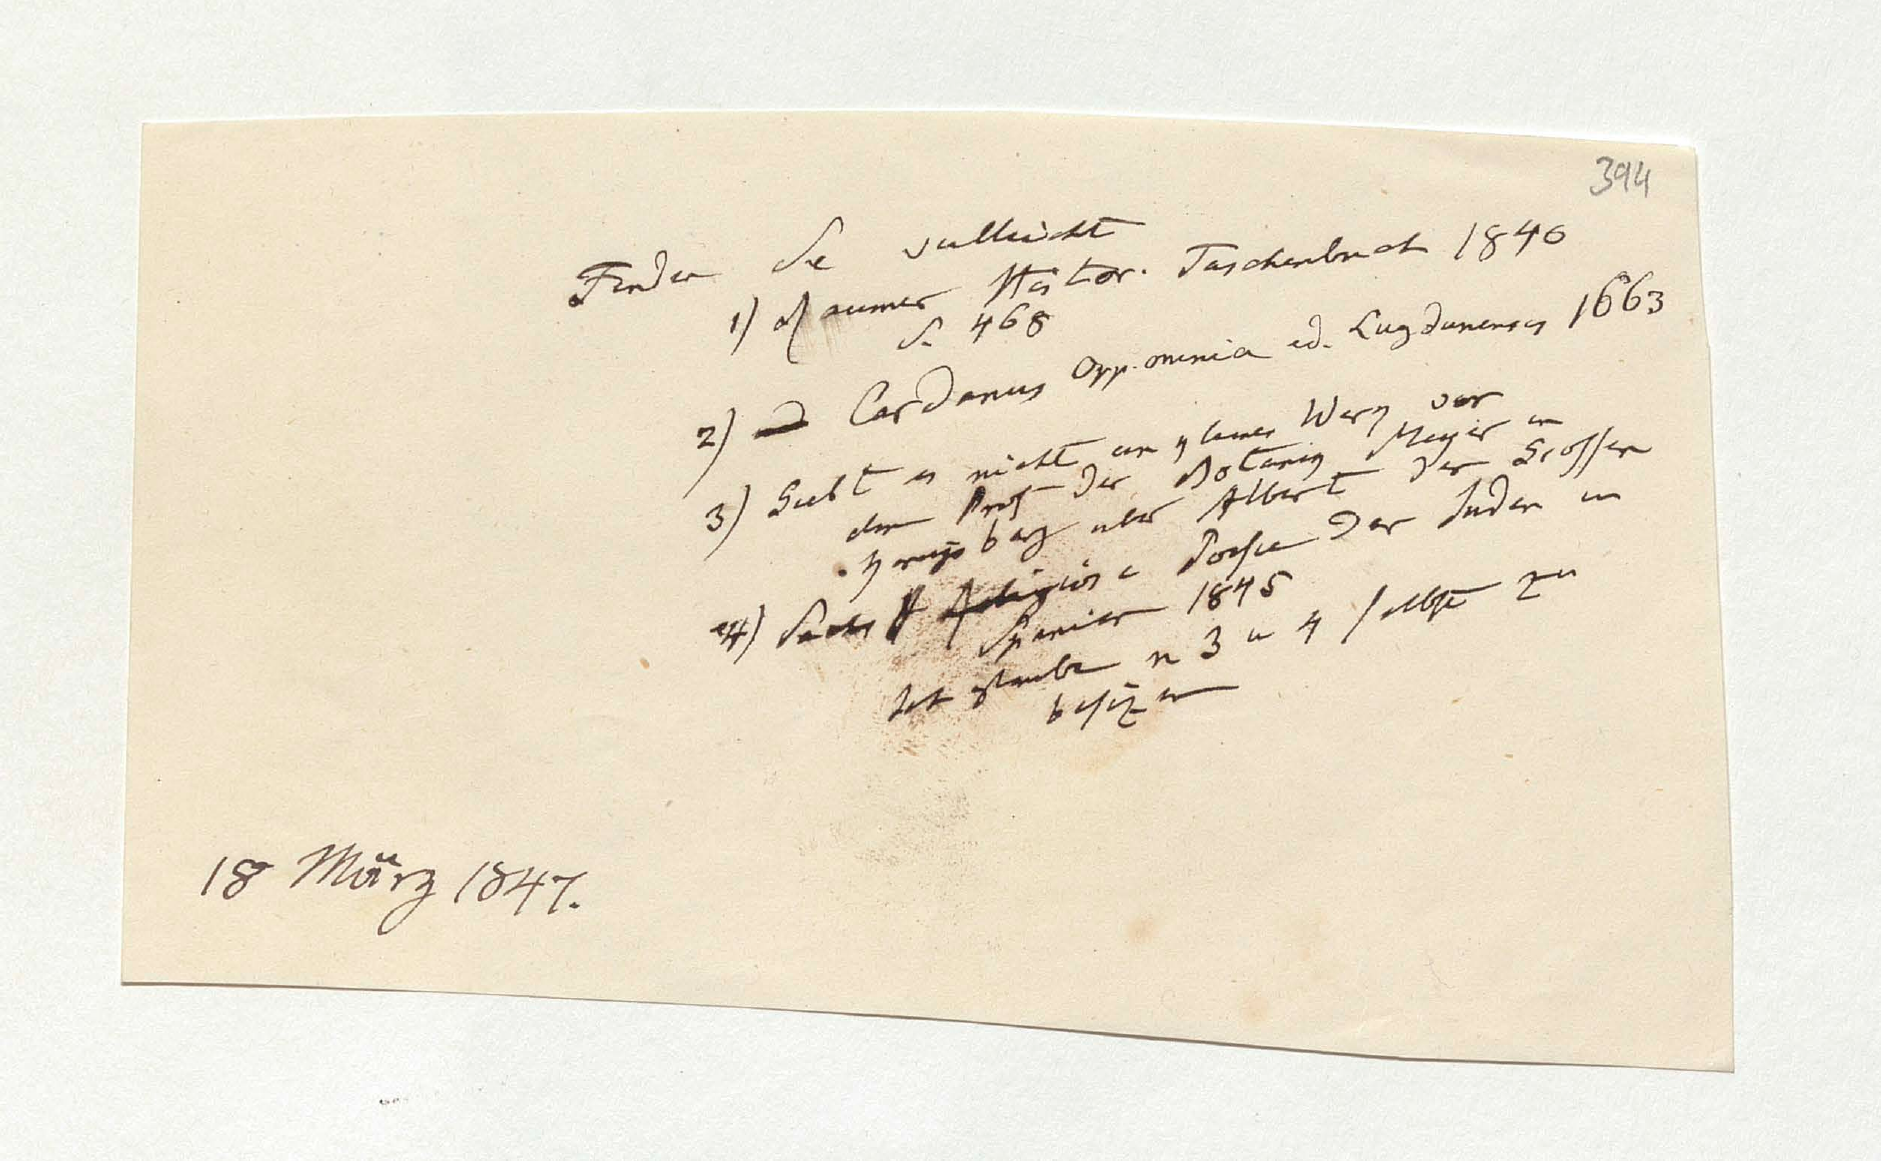 394
Finden Sie vielleicht
1) Raumer Histor. Taschenbuch 1840
S. 468
2) Cardanus Opp. omnia ed. Lugdunensis 1663
3) Giebt es nicht ein kleines Werk von
dem Prof der Botanik Meyer in
Königsberg über Albert der Grossen
4) Sachs Religiöse Poesie der Juden in
Spanien 1845
Ich glaube n 3 u 4 selbst zu
besizen
18 März 1847.